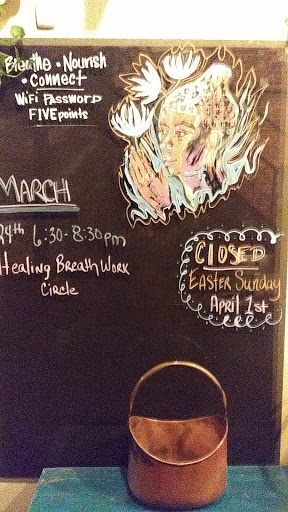 Breathe • Nourish
• Connect
WiFi Password
FIVEpoints
MARCH
24th 6:30-8:30pm
Healing BreathWork
Circle
CLOSED
EASTER Sunday
April 1st